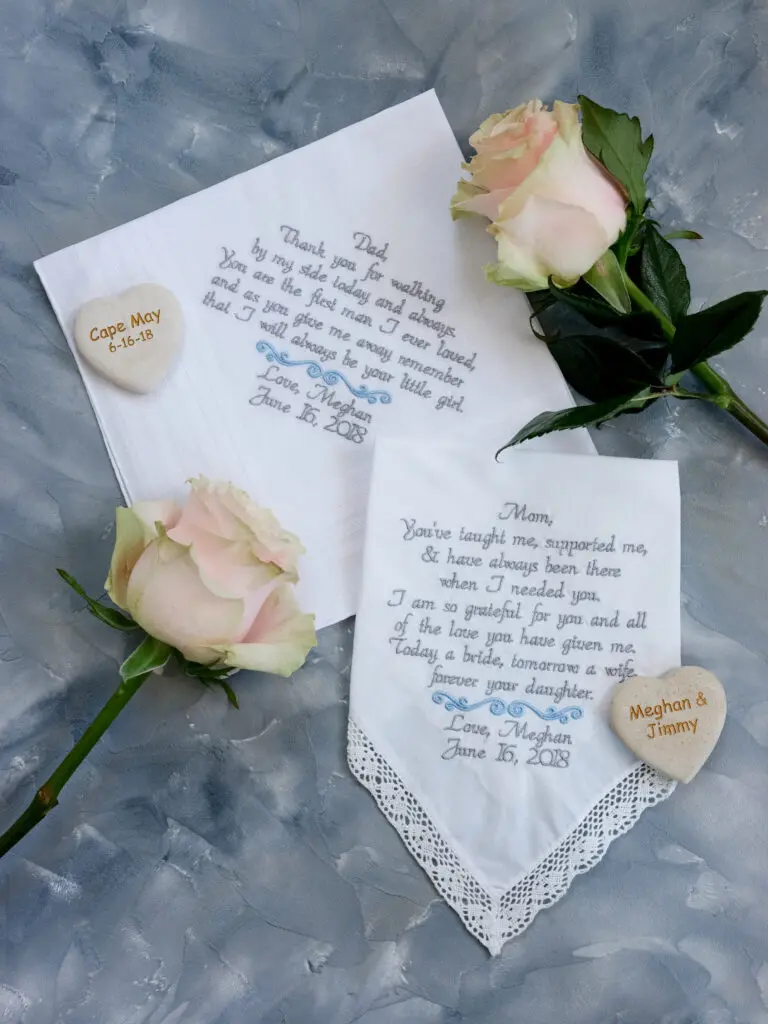 Dad,
Thank you for walking
by my side today and always.
You are the first man I ever loved,
and as you give me away remember
that I will always be your little girl.
Love, Meghan
June 16, 2018
Cape May
6-16-18
Mom,
You've taught me, supported me,
& have always been there
when I needed you.
I am so grateful for you and all
of the love you have given me.
Today a bride, tomorrow a wife,
forever your daughter.
Love, Meghan
June 16, 2018
Meghan &
Jimmy